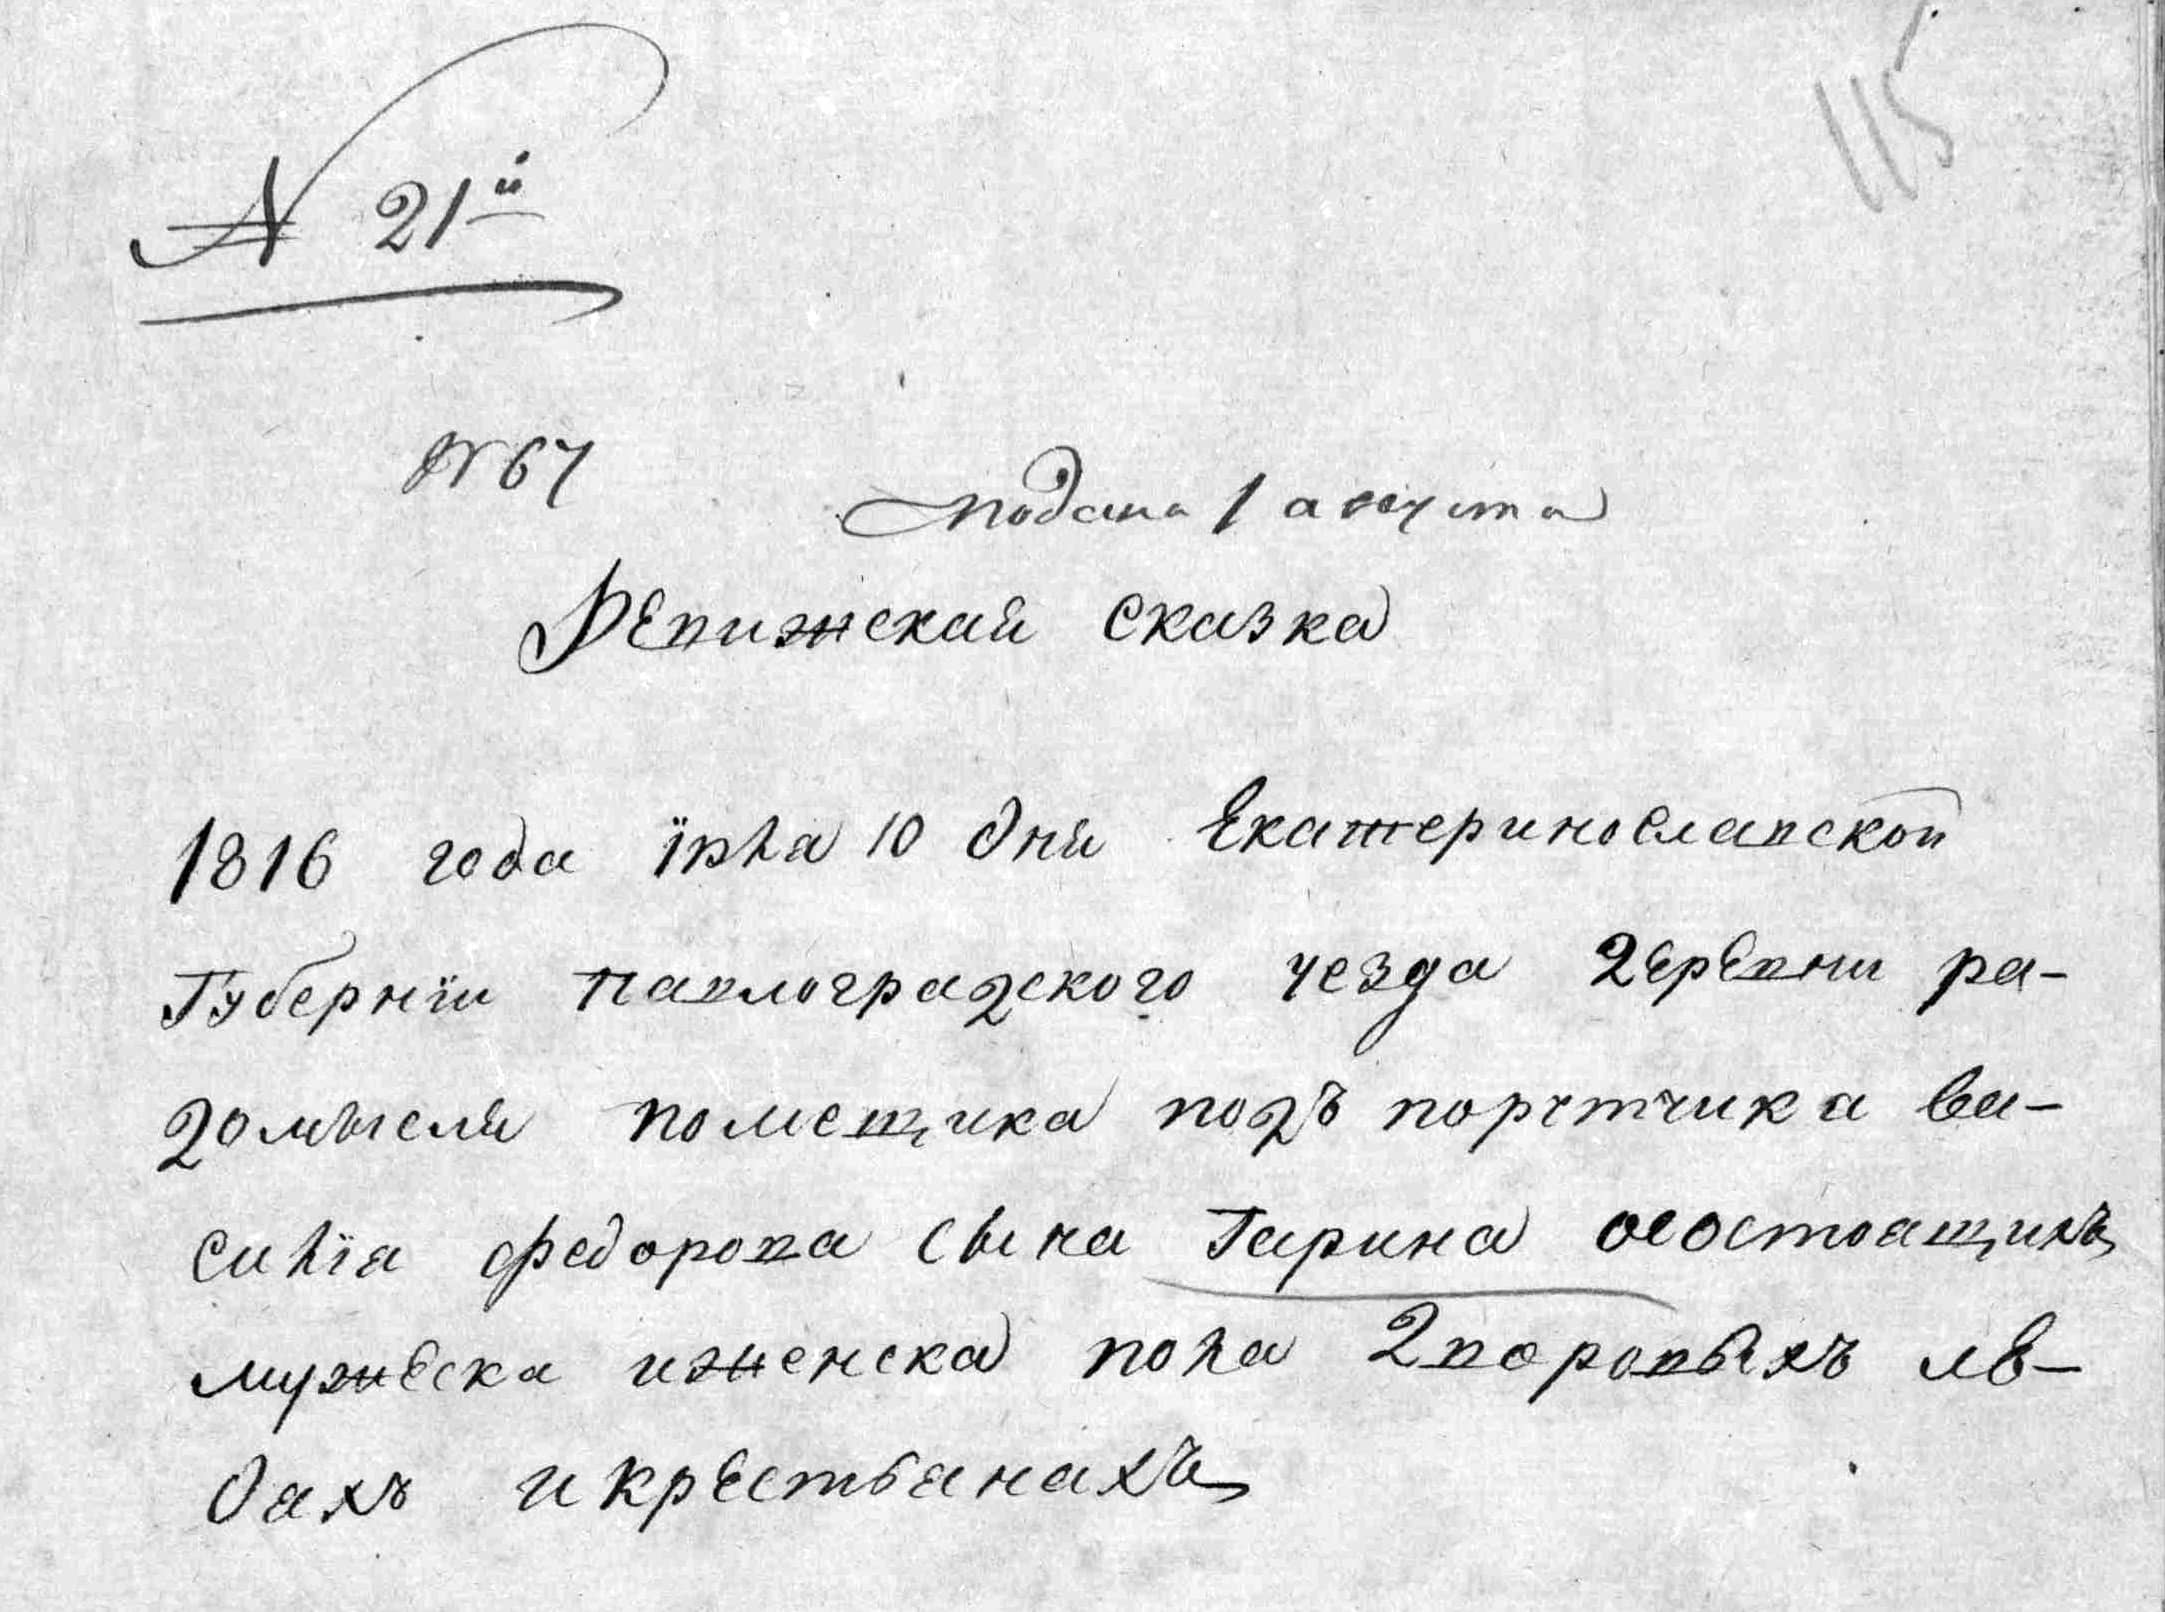 115
N 21й
N 67
подана 1 августа
Ревижская сказка
1816 года июля 10 дня Екатеринославской
Губернїи павлоградского уезда деревни ра-
домысля помещика подъ порутчика ва-
силїя федорова сына Гарина осостоящихъ
мужеска иженска пола дворовыхъ лю-
дахъ икрестьянахъ